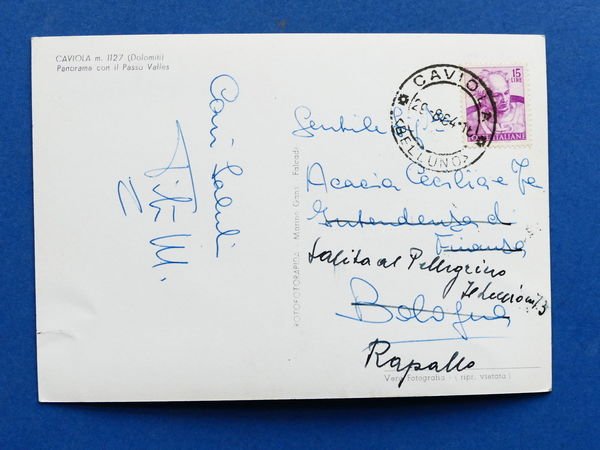 CAVIOLA m. 1127 (Dolomiti)
Panorama con il Passo Valles
Cari Saluti
ROTOFOTORAPIDA - Marino Ganz - Falcade
CAVIOLA
(BELLUNO)
15
LIRE
POSTE ITALIANE
Gentile
Acacia Cecilia e
Intendenza di
Finanza
Salita al Pellegrino
Bologna
Rapallo
Vera Fotografia - ( ripr. vietata )